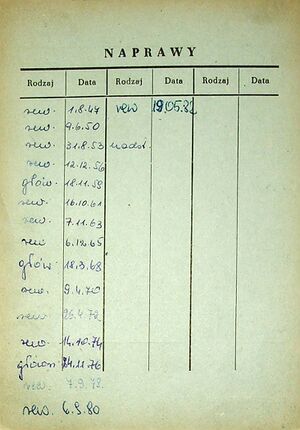 NAPRAWY
Rodzaj Data Rodzaj Data Rodzaj Data
rew. 1.8.47 rew 19.05.82
rew. 9.6.50
rew. 31.8.53 nadzw.
rew. 12.12.56
głów. 18.11.59
rew. 16.10.61
rew. 7.11.63
rew 6.12.65
głów. 18.3.68
rew. 9.4.70
rew. 26.4.72
rew. 14.10.74
główn. 24.11.76
rew. 7.9.78.
rew. 6.9.80